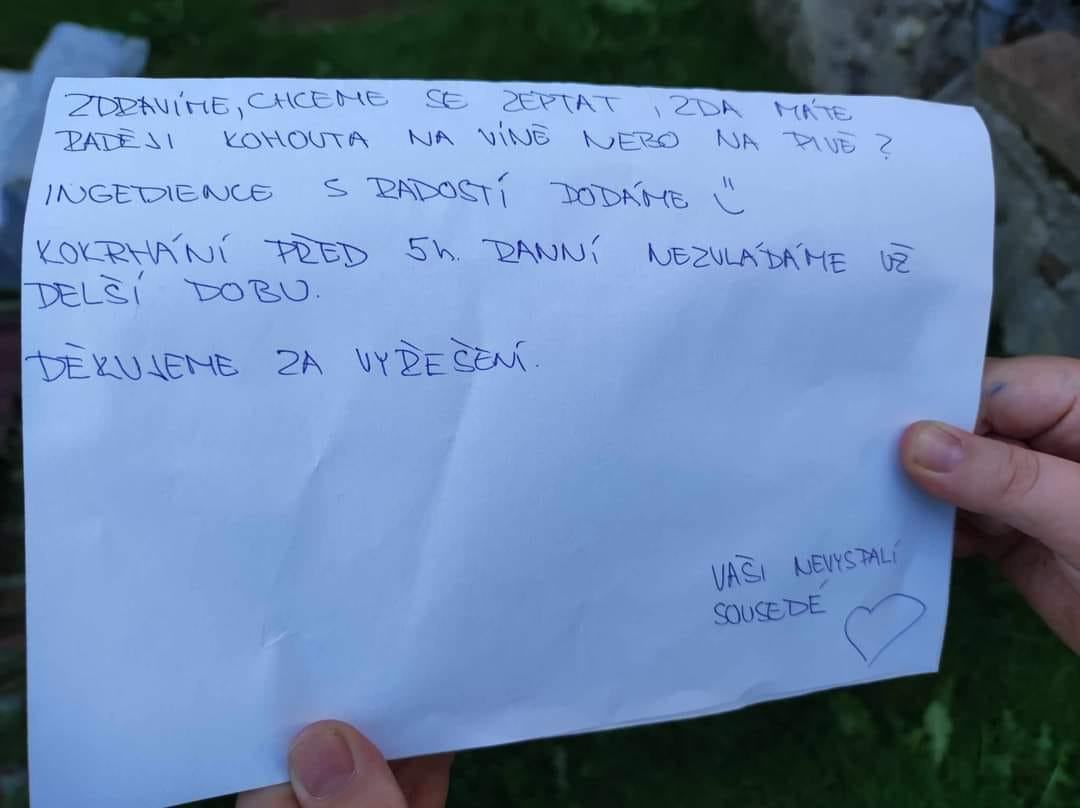 ZDRAVÍME, CHCEME SE ZEPTAT, ZDA MÁTE
RADĚJI KOHOUTA NA VÍNĚ NEBO NA PIVĚ?
INGEDIENCE S RADOSTÍ DODÁME
KOKRHÁNÍ PŘED 5h. RANNÍ NEZVLÁDÁME UŽ
DELŠÍ DOBU.
DĚKUJEME ZA VYŘEŠENÍ.
VAŠI NEVYSPALÍ
SOUSEDÉ